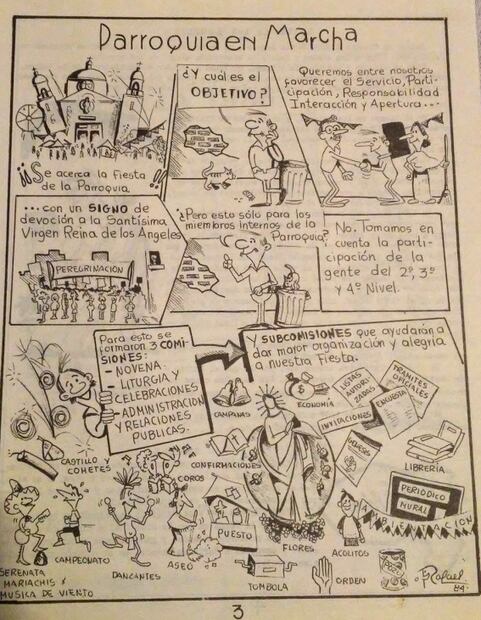 Parroquia en Marcha
¡¡Se acerca la Fiesta
de la Parroquia.!!
¿Y cuál es el
OBJETIVO?
Queremos entre nosotros
favorecer el Servicio, Parti-
cipación, Responsabilidad
Interacción y Apertura...
...con un SIGNO de
devoción a la Santísima
Virgen Reina de los Angeles
PEREGRINACIÓN
¿Pero esto sólo para los
miembros internos de la
Parroquia?
No. Tomamos en
cuenta la parti-
cipación de la
gente del 2º, 3º
y 4º Nivel.
Para esto se
formaron 3 COMI-
SIONES:
- NOVENA.
- LITURGIA Y
CELEBRACIONES
- ADMINISTRACIÓN
Y RELACIONES
PUBLICAS.
Y SUBCOMISIONES que ayudarán a
dar mayor organización y alegria
a nuestra Fiesta.
CAMPANAS
ECONOMÍA
LIGAS
AUTORI-
ZADAS
TRAMITES
OFICIALES
ENCUESTA
INVITACIONES
LIBRERÍA
CONFIRMACIONES
PERIÓDICO
MURAL
AMBIENTACION
CASTILLO Y
COHETES
COROS
PUESTO
FLORES
ACOLITOS
SERENATA
MARIACHIS Y
MUSICA DE VIENTO
CAMPEONATO
DANZANTES
ASEO
TOMBOLA
ORDEN
Rafael
84
3